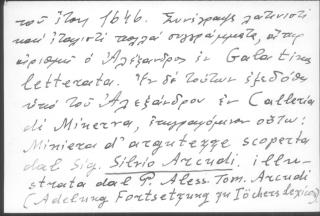 τοῦ ἔτους 1646. Συνέγραψε λατινιστὶ
καὶ ἰταλιστὶ πολλὰ συγγράμματα,
ὁ Ἀλέξανδρος ἐν Galatina
letterata. Ἐκ δὲ τούτων ἐξεδόθη
ὑπὸ τοῦ Ἀλεξάνδρου ἐν Galleria
di Minerva, ἐπιγραφόμενον οὕτω:
Miniera d'argutezze scoperta
dal Sig. Silvio Arcudi, illu-
strata dal P. Aless. Tom. Arcudi
(Adelung Fortsetzung zu Jöchers Lexicon)